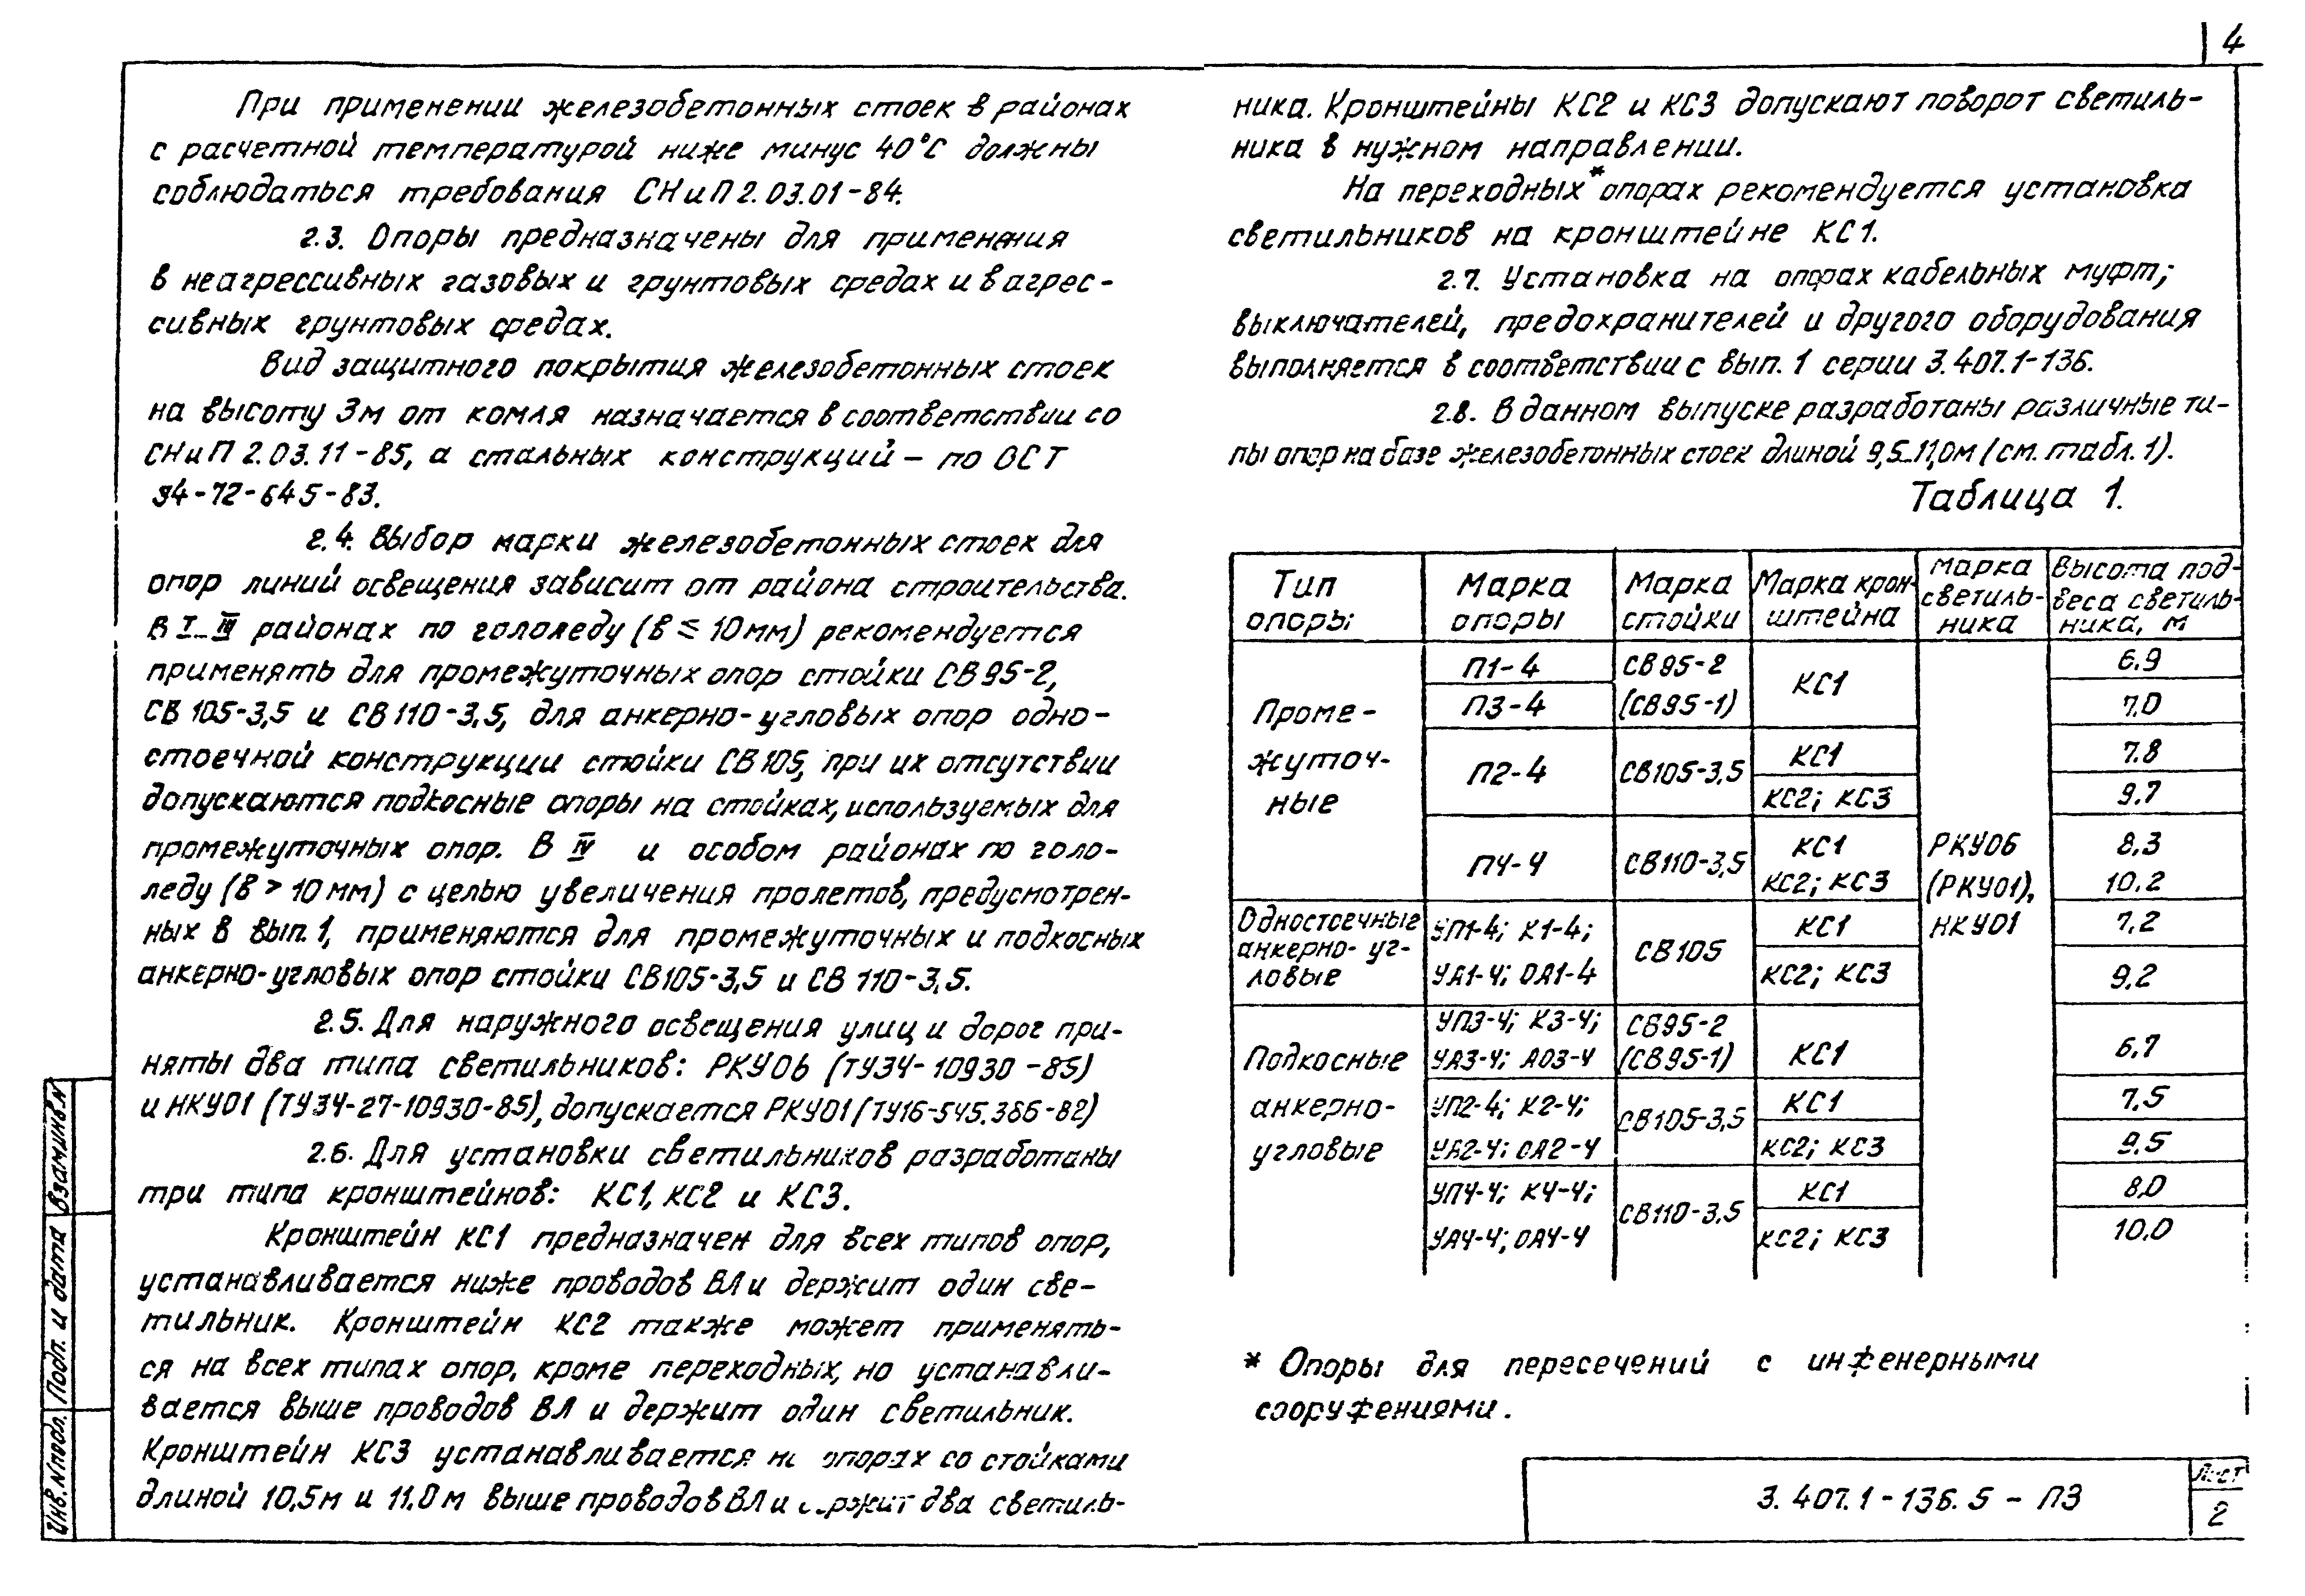 4
При применении железобетонных стоек в районах
с расчетной температурой ниже минус 40°С должны
соблюдаться требования СНиП 2.03.01-84.
2.3. Опоры предназначены для применения
в неагрессивных газовых и грунтовых средах и в агрес-
сивных грунтовых средах.
Вид защитного покрытия железобетонных стоек
на высоту 3м от комля назначается в соответствии со
СНиП 2.03.11-85, а стальных конструкций – по ОСТ
34-72-645-83.
2.4. Выбор марки железобетонных стоек для
опор линий освещения зависит от района строительства.
В I...III районах по гололеду (в ≤ 10мм) рекомендуется
применять для промежуточных опор стойки СВ95-2,
СВ105-3,5 и СВ110-3,5, для анкерно-угловых опор одно-
стоечной конструкции стойки СВ105, при их отсутствии
допускаются подкосные опоры на стойках, используемых для
промежуточных опор. В IV и особом районах по голо-
леду (в > 10мм) с целью увеличения пролетов, предусмотрен-
ных в вып. 1, применяются для промежуточных и подкосных
анкерно-угловых опор стойки СВ105-3,5 и СВ110-3,5.
2.5. Для наружного освещения улиц и дорог при-
няты два типа светильников: РКУ06 (ТУ34-10930-85)
и НКУ01 (ТУ34-27-10930-85), допускается РКУ01 (ТУ16-545.386-82)
2.6. Для установки светильников разработаны
три типа кронштейнов: КС1, КС2 и КС3.
Кронштейн КС1 предназначен для всех типов опор,
устанавливается ниже проводов ВЛ и держит один све-
тильник. Кронштейн КС2 также может применять-
ся на всех типах опор, кроме переходных, но устанавли-
вается выше проводов ВЛ и держит один светильник.
Кронштейн КС3 устанавливается на опорах со стойками
длиной 10,5м и 11,0м выше проводов ВЛ и держит два светиль-
ника. Кронштейны КС2 и КС3 допускают поворот светиль-
ника в нужном направлении.
На переходных* опорах рекомендуется установка
светильников на кронштейне КС1.
2.7. Установка на опорах кабельных муфт;
выключателей, предохранителей и другого оборудования
выполняется в соответствии с вып. 1 серии 3.407.1-136.
2.8. В данном выпуске разработаны различные ти-
пы опор на базе железобетонных стоек длиной 9,5...11,0м (см. табл. 1).
Таблица 1.
Тип опоры Марка опоры Марка стойки Марка крон-штейна Марка светиль-ника Высота под-веса светиль-ника, м
Проме-жуточ-ные П1-4 СВ95-2 (СВ95-1) КС1 РКУ06 (РКУ01), НКУ01 6.9
П3-4 7.0
П2-4 СВ105-3,5 КС1 7.8
КС2; КС3 9.7
П4-4 СВ110-3,5 КС1 8.3
КС2; КС3 10.2
Одностоечные анкерно-уг-ловые УП1-4; К1-4; УА1-4; ОА1-4 СВ105 КС1 7.2
КС2; КС3 9.2
Подкосные анкерно-угловые УП3-4; К3-4; УА3-4; АО3-4 СВ95-2 (СВ95-1) КС1 6.7
УП2-4; К2-4; УА2-4; ОА2-4 СВ105-3,5 КС1 7.5
КС2; КС3 9.5
УП4-4; К4-4; УА4-4; ОА4-4 СВ110-3,5 КС1 8.0
КС2; КС3 10.0
* Опоры для пересечений с инженерными
сооружениями.
3.407.1-136.5-ПЗ
Лист
2
Инв.№подл. Подп. и дата Взам.инв.№